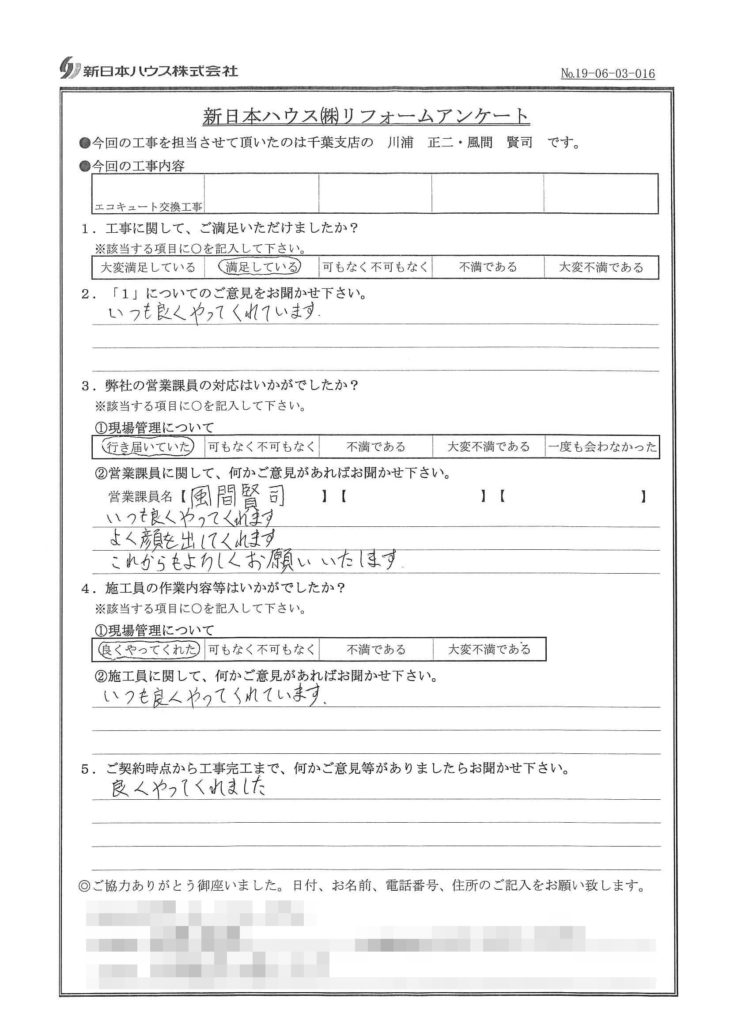 新日本ハウス株式会社
No.19-06-03-016
新日本ハウス㈱リフォームアンケート
●今回の工事を担当させて頂いたのは千葉支店の 川浦 正二・風間 賢司 です。
●今回の工事内容
エコキュート交換工事
1．工事に関して、ご満足いただけましたか？
※該当する項目に○を記入して下さい。
大変満足している 満足している 可もなく不可もなく 不満である 大変不満である
2．「1」についてのご意見をお聞かせ下さい。
いつも良くやってくれています.
3．弊社の営業課員の対応はいかがでしたか？
※該当する項目に○を記入して下さい。
①現場管理について
行き届いていた 可もなく不可もなく 不満である 大変不満である 一度も会わなかった
②営業課員に関して、何かご意見があればお聞かせ下さい。
営業課員名【風間賢司 】【 】【 】
いつも良くやってくれます
よく顔を出してくれます
これからもよろしくお願いいたします.
4．施工員の作業内容等はいかがでしたか？
※該当する項目に○を記入して下さい。
①現場管理について
良くやってくれた 可もなく不可もなく 不満である 大変不満である
②施工員に関して、何かご意見があればお聞かせ下さい。
いつも良くやってくれています.
5．ご契約時点から工事完工まで、何かご意見等がありましたらお聞かせ下さい。
良くやってくれました
◎ご協力ありがとう御座いました。日付、お名前、電話番号、住所のご記入をお願い致します。